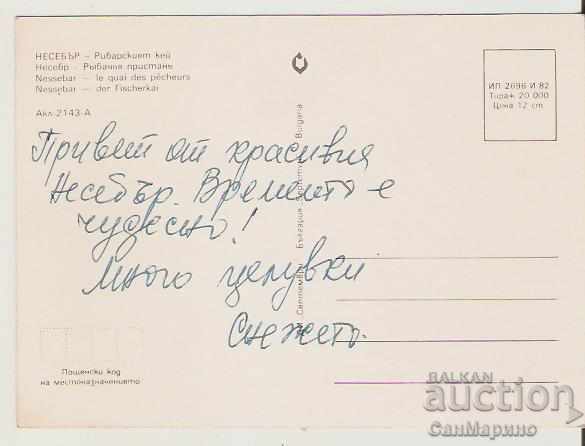 НЕСЕБЪР — Рибарският кей
Несебр — Рыбачья пристань
Nessebar — le quai des pêcheurs
Nessebar — der Fischerkai
Акл-2143-А
ИП 2696 И 82
Тираж 20 000
Цена 12 ст.
България
Bulgaria
Привет от красивия
Несебър. Времето е
чудесно!
Много целувки
Снежето.
Пощенски код
на местоназначението
BALKAN
auction
СанМарино